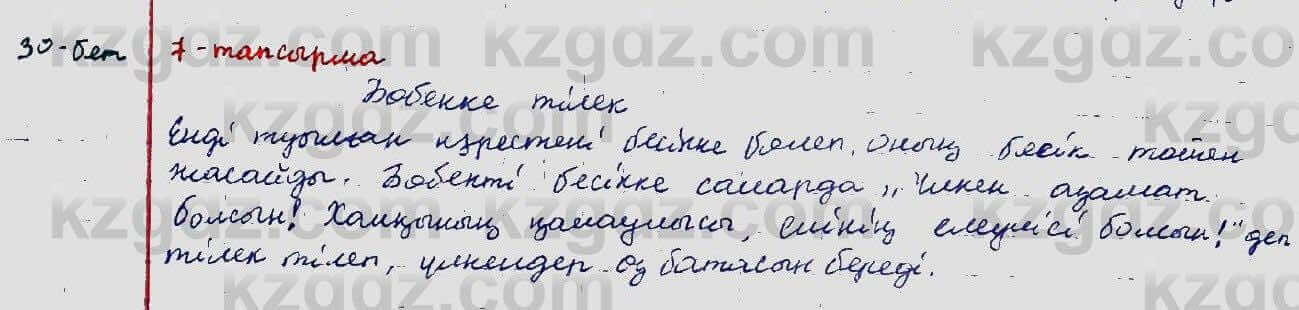 30-бет 7-тапсырма
Бөбекке тілек
Енді туылған нәрестені бесікке бөлеп, оның бесік тойын
жасайды. Бөбекті бесікке саларда „Үлкен азамат
болсын! Халқының қалаулысы, елінің елеулісі болсын!" деп
тілек тілеп, үлкендер өз батасын береді.
kzgdz.com